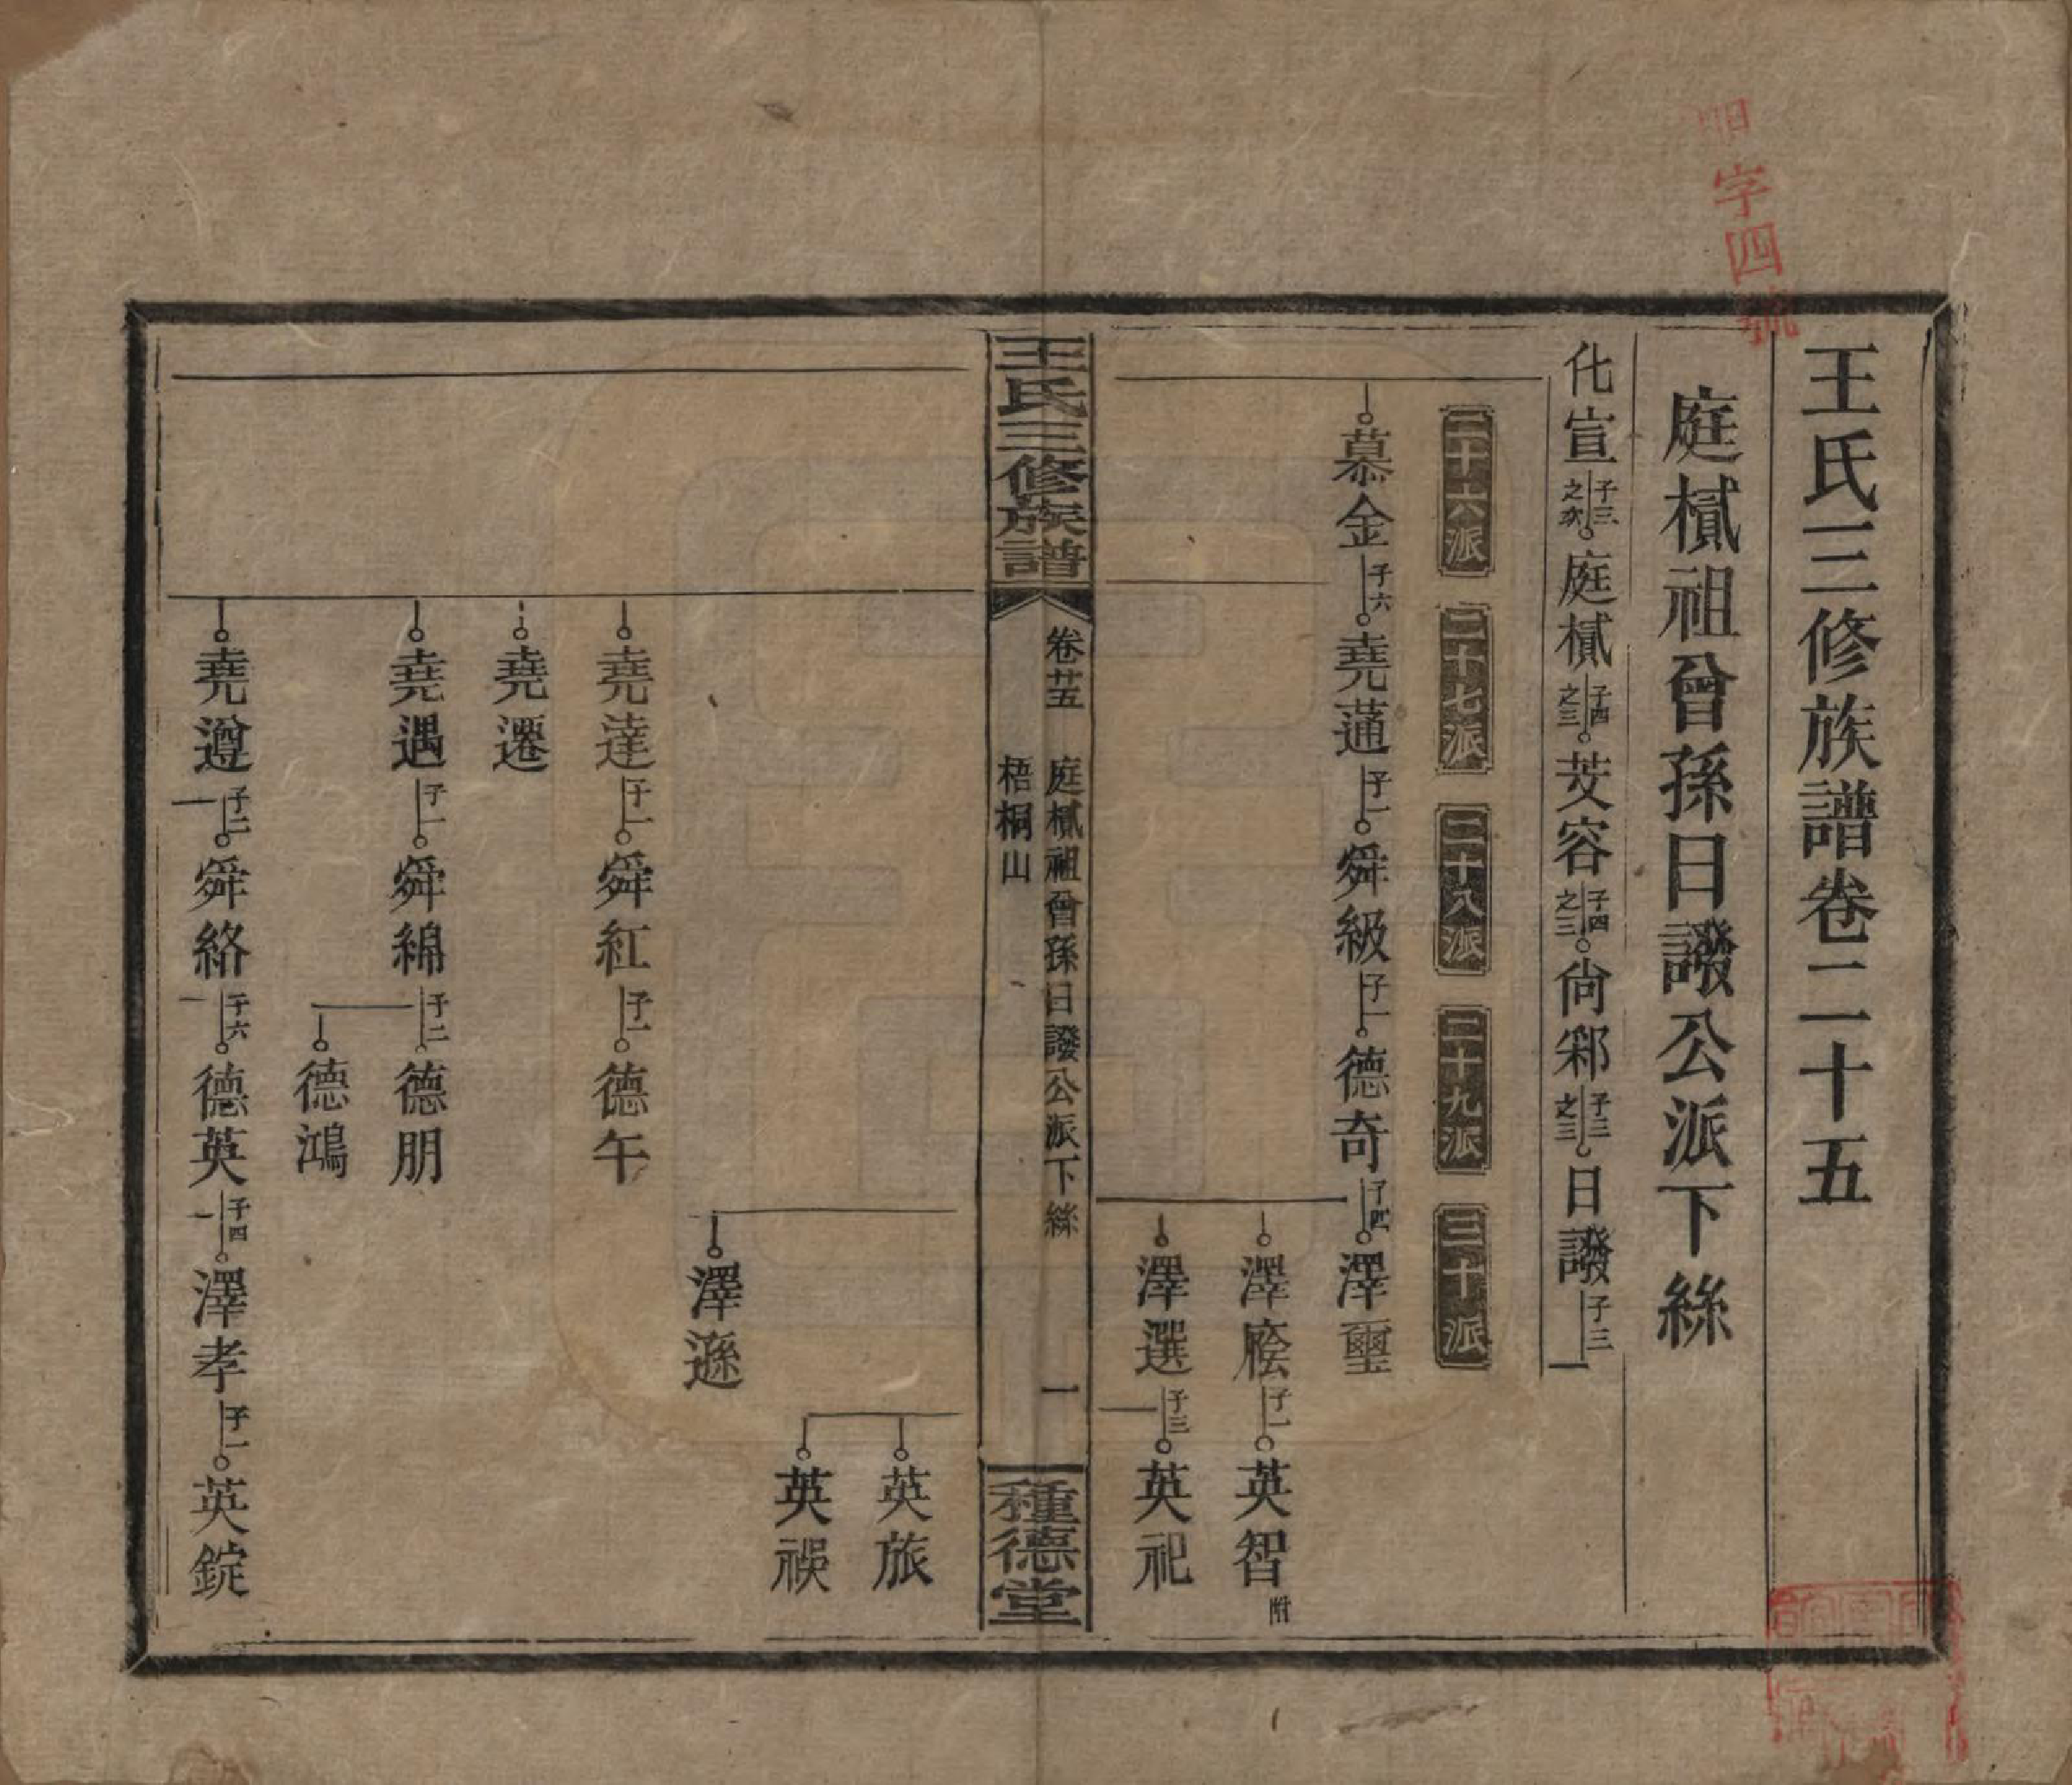 王氏三修族譜卷二十五
庭樲祖曾孫日譭公派下絲
化宣 子三之次 庭樲 子四之三 芨容 子四之三 尙鄴 子三之三 日 子三
二十六派 二十七派 二十八派 二十九派 三十派
慕金 子六 堯蓪 子一 舜級 子一 德奇 子四 澤璽
澤 子一 英智 附
澤選 子三 英祀
王氏三修族譜 卷廿五 庭樲祖曾孫日 公派下絲 梧桐山 一 種德堂
英旅
英
澤遜
堯達 子一 舜紅 子一 德午
堯遷
堯遇 子一 舜綿 子二 德朋
德鴻
堯遵 子二 舜絡 子六 德英 子四 澤孝 子一 英錠
字四號